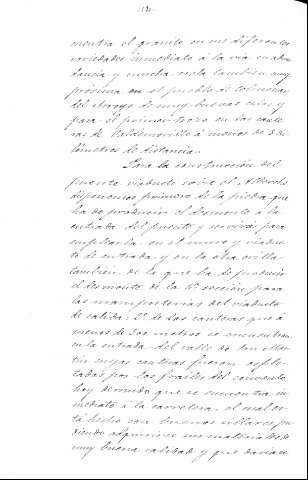 -12-
mentra el granito en sus diferentes
variedades inmediato á la via en abun
dancia y mucha cuesta tambien muy
próxima en el pueblo de Colmenar
del Arroyo de muy buenas cales y
para el primer trozo en las cante
ras de Valdemorillo á menos de 5 ki
lómetros de distancia.
Para la construccion del
puente viaducto sobre el Alberche
disponemos primero de la piedra que
ha de producir el desmonte á la
entrada del puente y servirá para
emplearla en el muro y viaduc
to de entrada, y en la otra orilla
tambien de la que ha de producir
el desmonte de la 1ª seccion para
las mamposterias del viaducto
de salida: 2º de las canteras que á
menos de 300 metros se encuentran
en la entrada del valle de San Mar
tin cuyas canteras fueron esplo
tadas por los frailes del convento
hoy derruido que se encuentra in
mediato á la carretera, el cual es
tá hecho con buenos sillares pu
diendo adquirirse sus materiales de
muy buena calidad y que darian